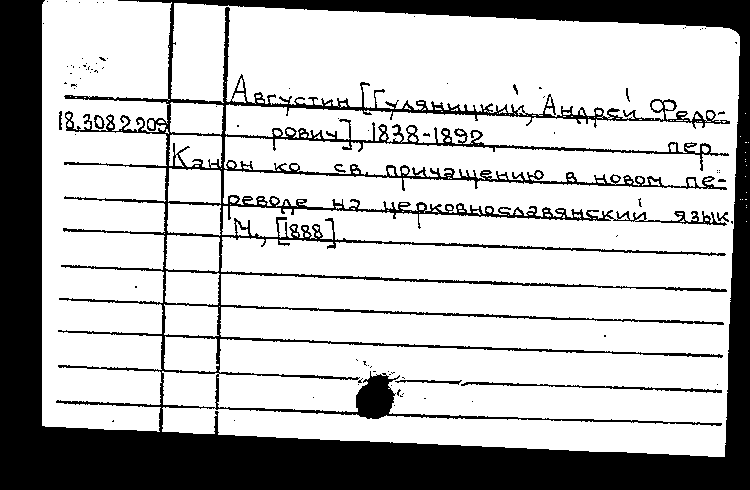 Августин [Гуляницкий, Андрей Федо-
18.308 2.209
рович], 1838-1892, пер.
Канон ко св. причащению в новом пе-
реводе на церковнославянский язык.
М., [1888].